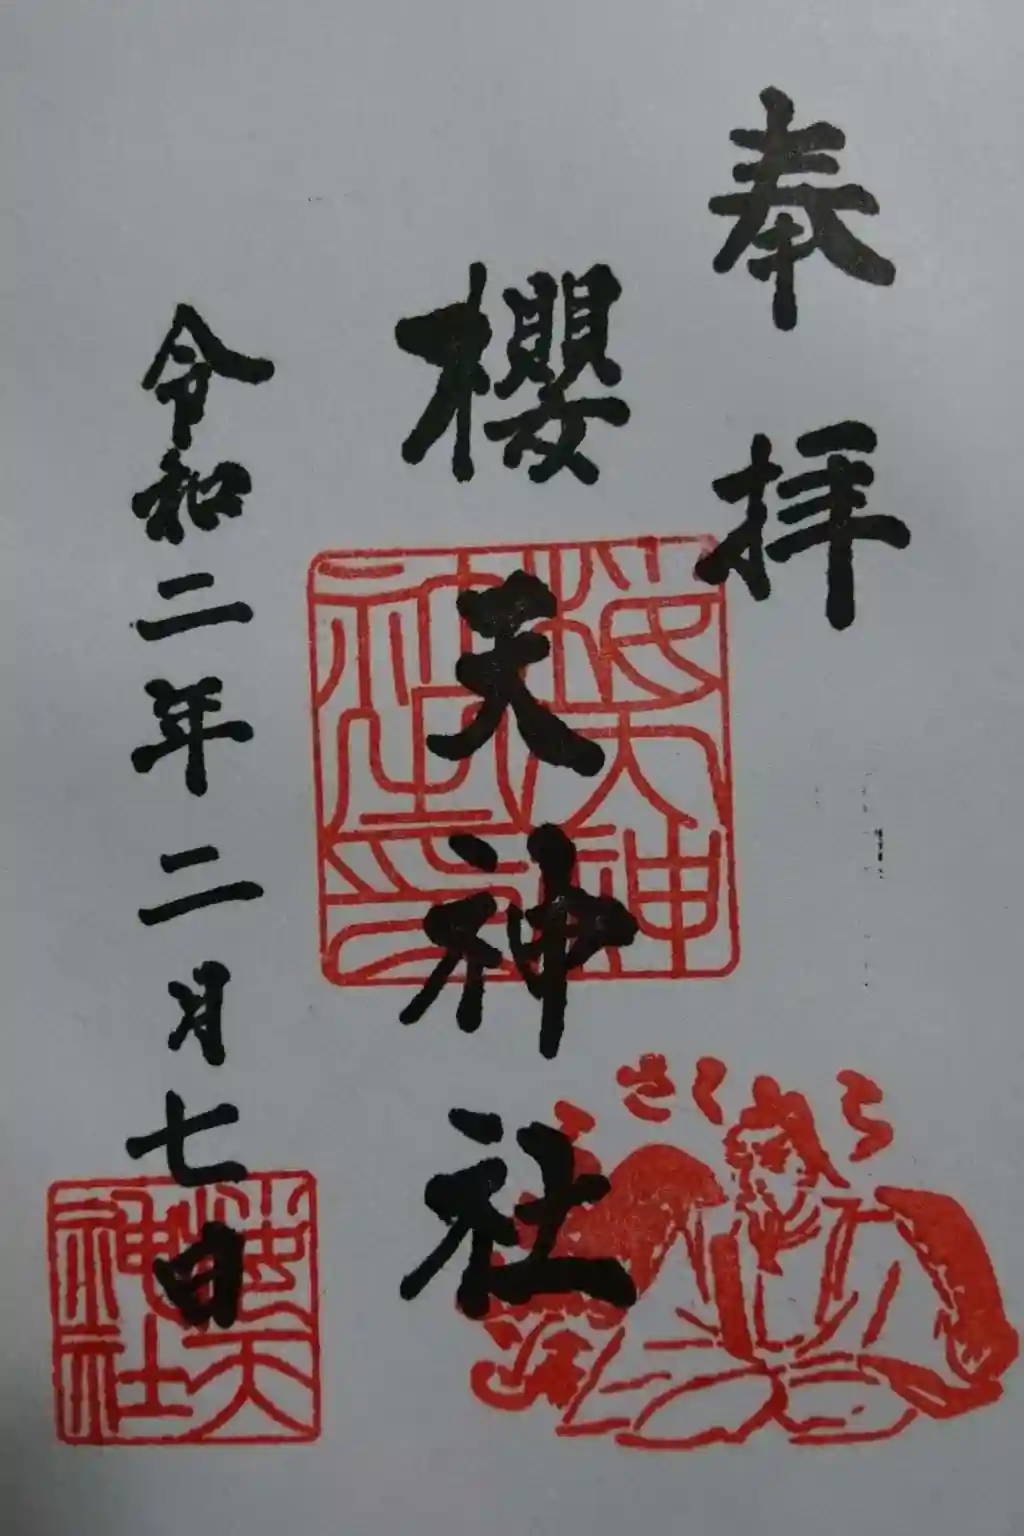 奉拝
櫻天神社
令和二年二月七日
梅天神社印
さくら
梅天神社